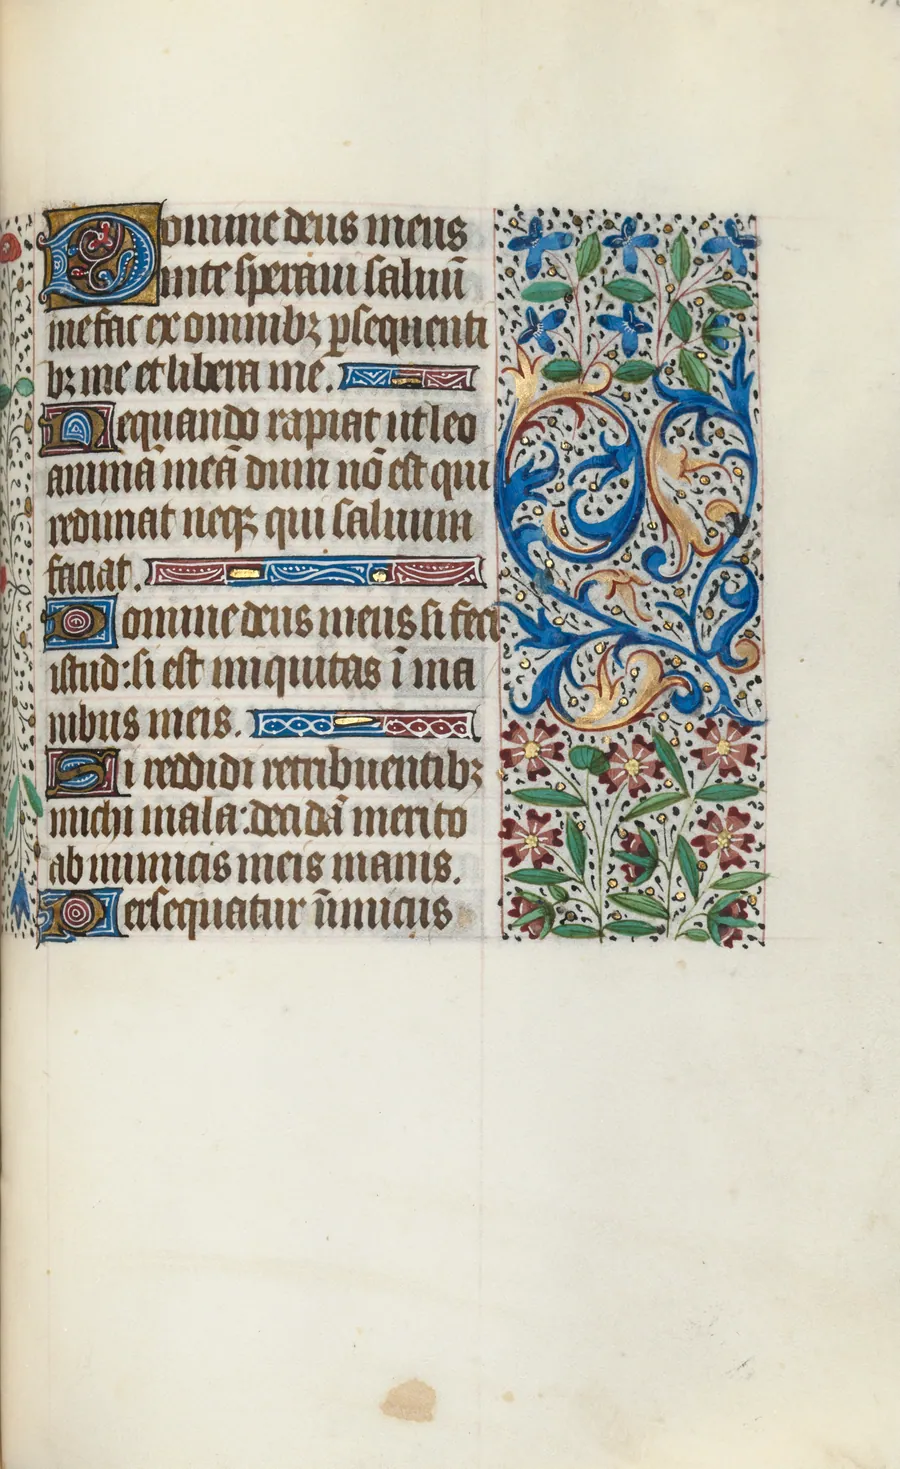 Domine deus meus
in te speraui saluū
me fac ex omnibꝫ ꝑsequenti
bꝫ me et libera me.
Nequando rapiat ut leo
animā meā dum nō est qui
redimat neqꝫ qui saluum
faciat.
Domine deus meus si feci
istud: si est iniquitas ī ma
nibus meis.
Si reddidi retribuentibꝫ
michi mala: decidā merito
ab inimicis meis inanis.
Persequatur inimicus